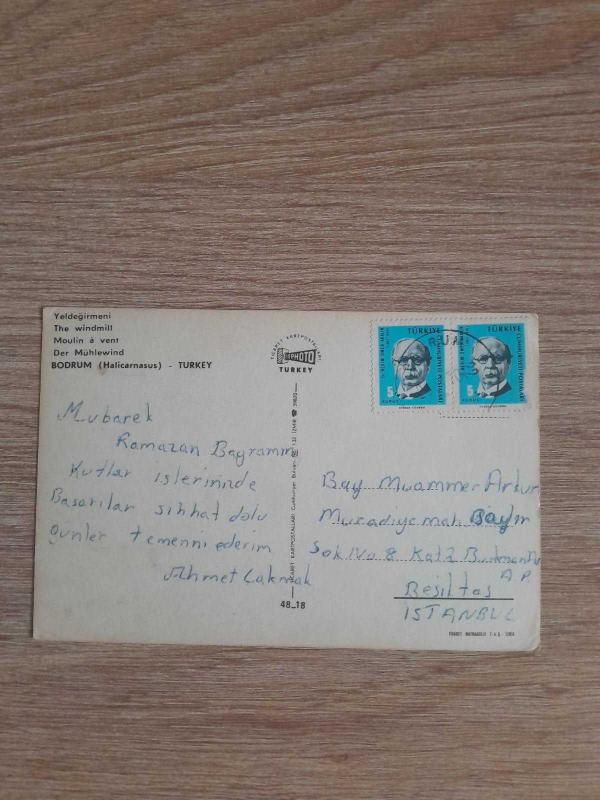 Yeldeğirmeni
The windmill
Moulin à vent
Der Mühlewind
BODRUM (Halicarnasus) - TURKEY
TİCARET KARTPOSTALLARI
PHOTO
TURKEY
TÜRKİYE
5
KURUŞ
TÜRKİYE
5
Mubarek
Ramazan Bayramın
Kutlar işlerininde
Başarılar sıhhat dolu
günler temenni ederim
Ahmet Çakmak
TİCARET KARTPOSTALLARI
48_18
Bay Muammer
Muradiye mah Bayır
Sok No 8 Kat 2
A.P.
Beşiktaş
İSTANBUL